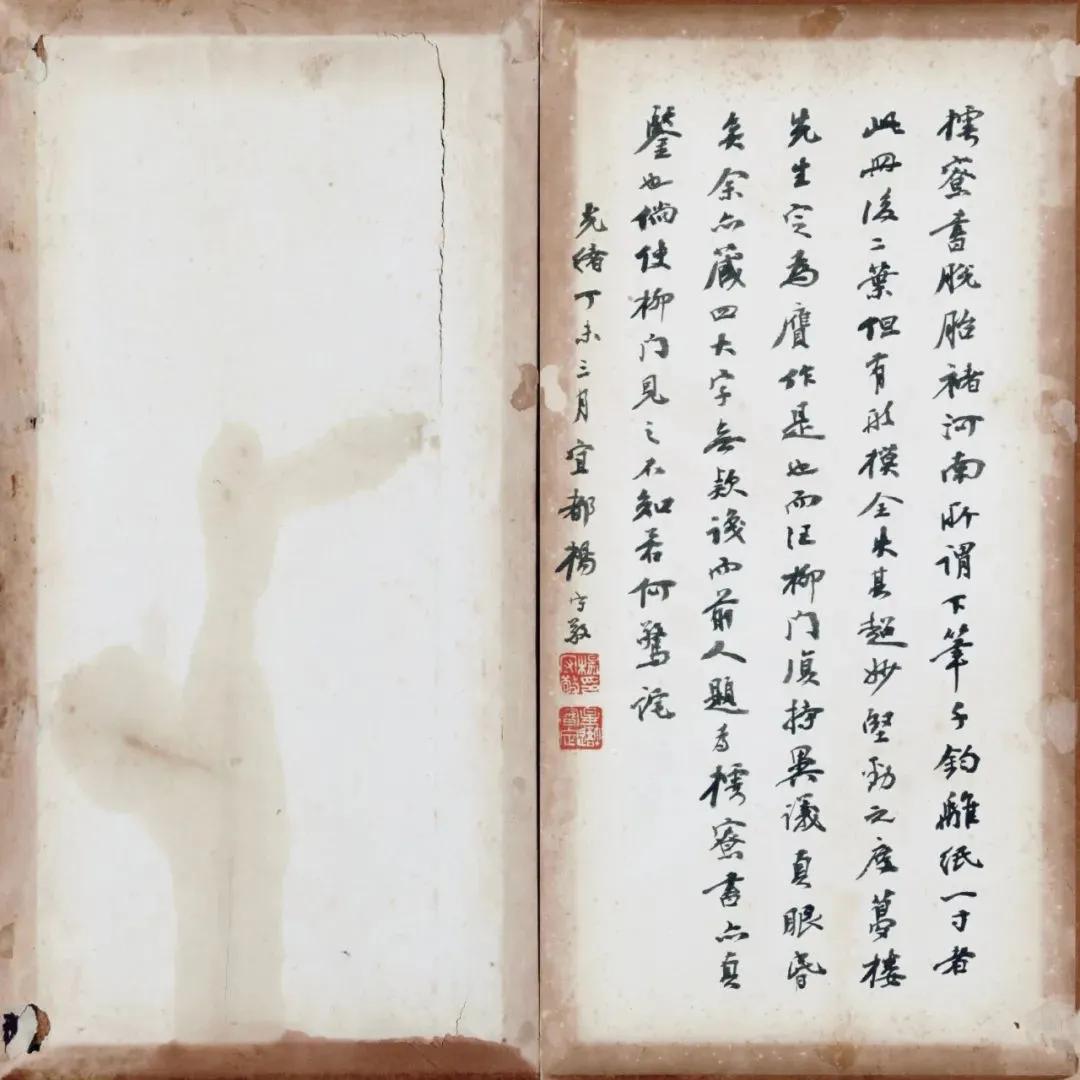 樗寮書脫胎褚河南所謂下筆千鈞離紙一寸者
此冊後二葉但有形模全失其超妙堅勁之度夢樓
先生定為贗作是也而汪柳門湏持異議真眼昏
矣余亦藏四大字無款識而前人題為樗寮書亦真
鑒也倘使柳門見之不知若何驚詫
光緒丁未三月宜都楊守敬